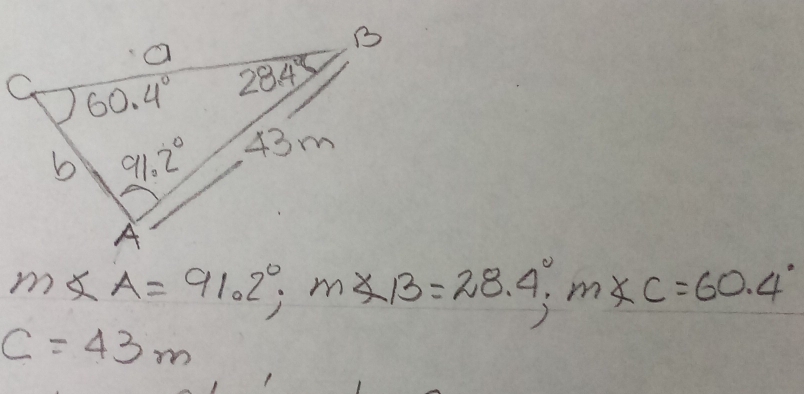 a
B
C
60.4°
28.4°
b
91.2°
43m
A
m∡A = 91.2°; m∡B = 28.4°; m∡C = 60.4°
C = 43 m